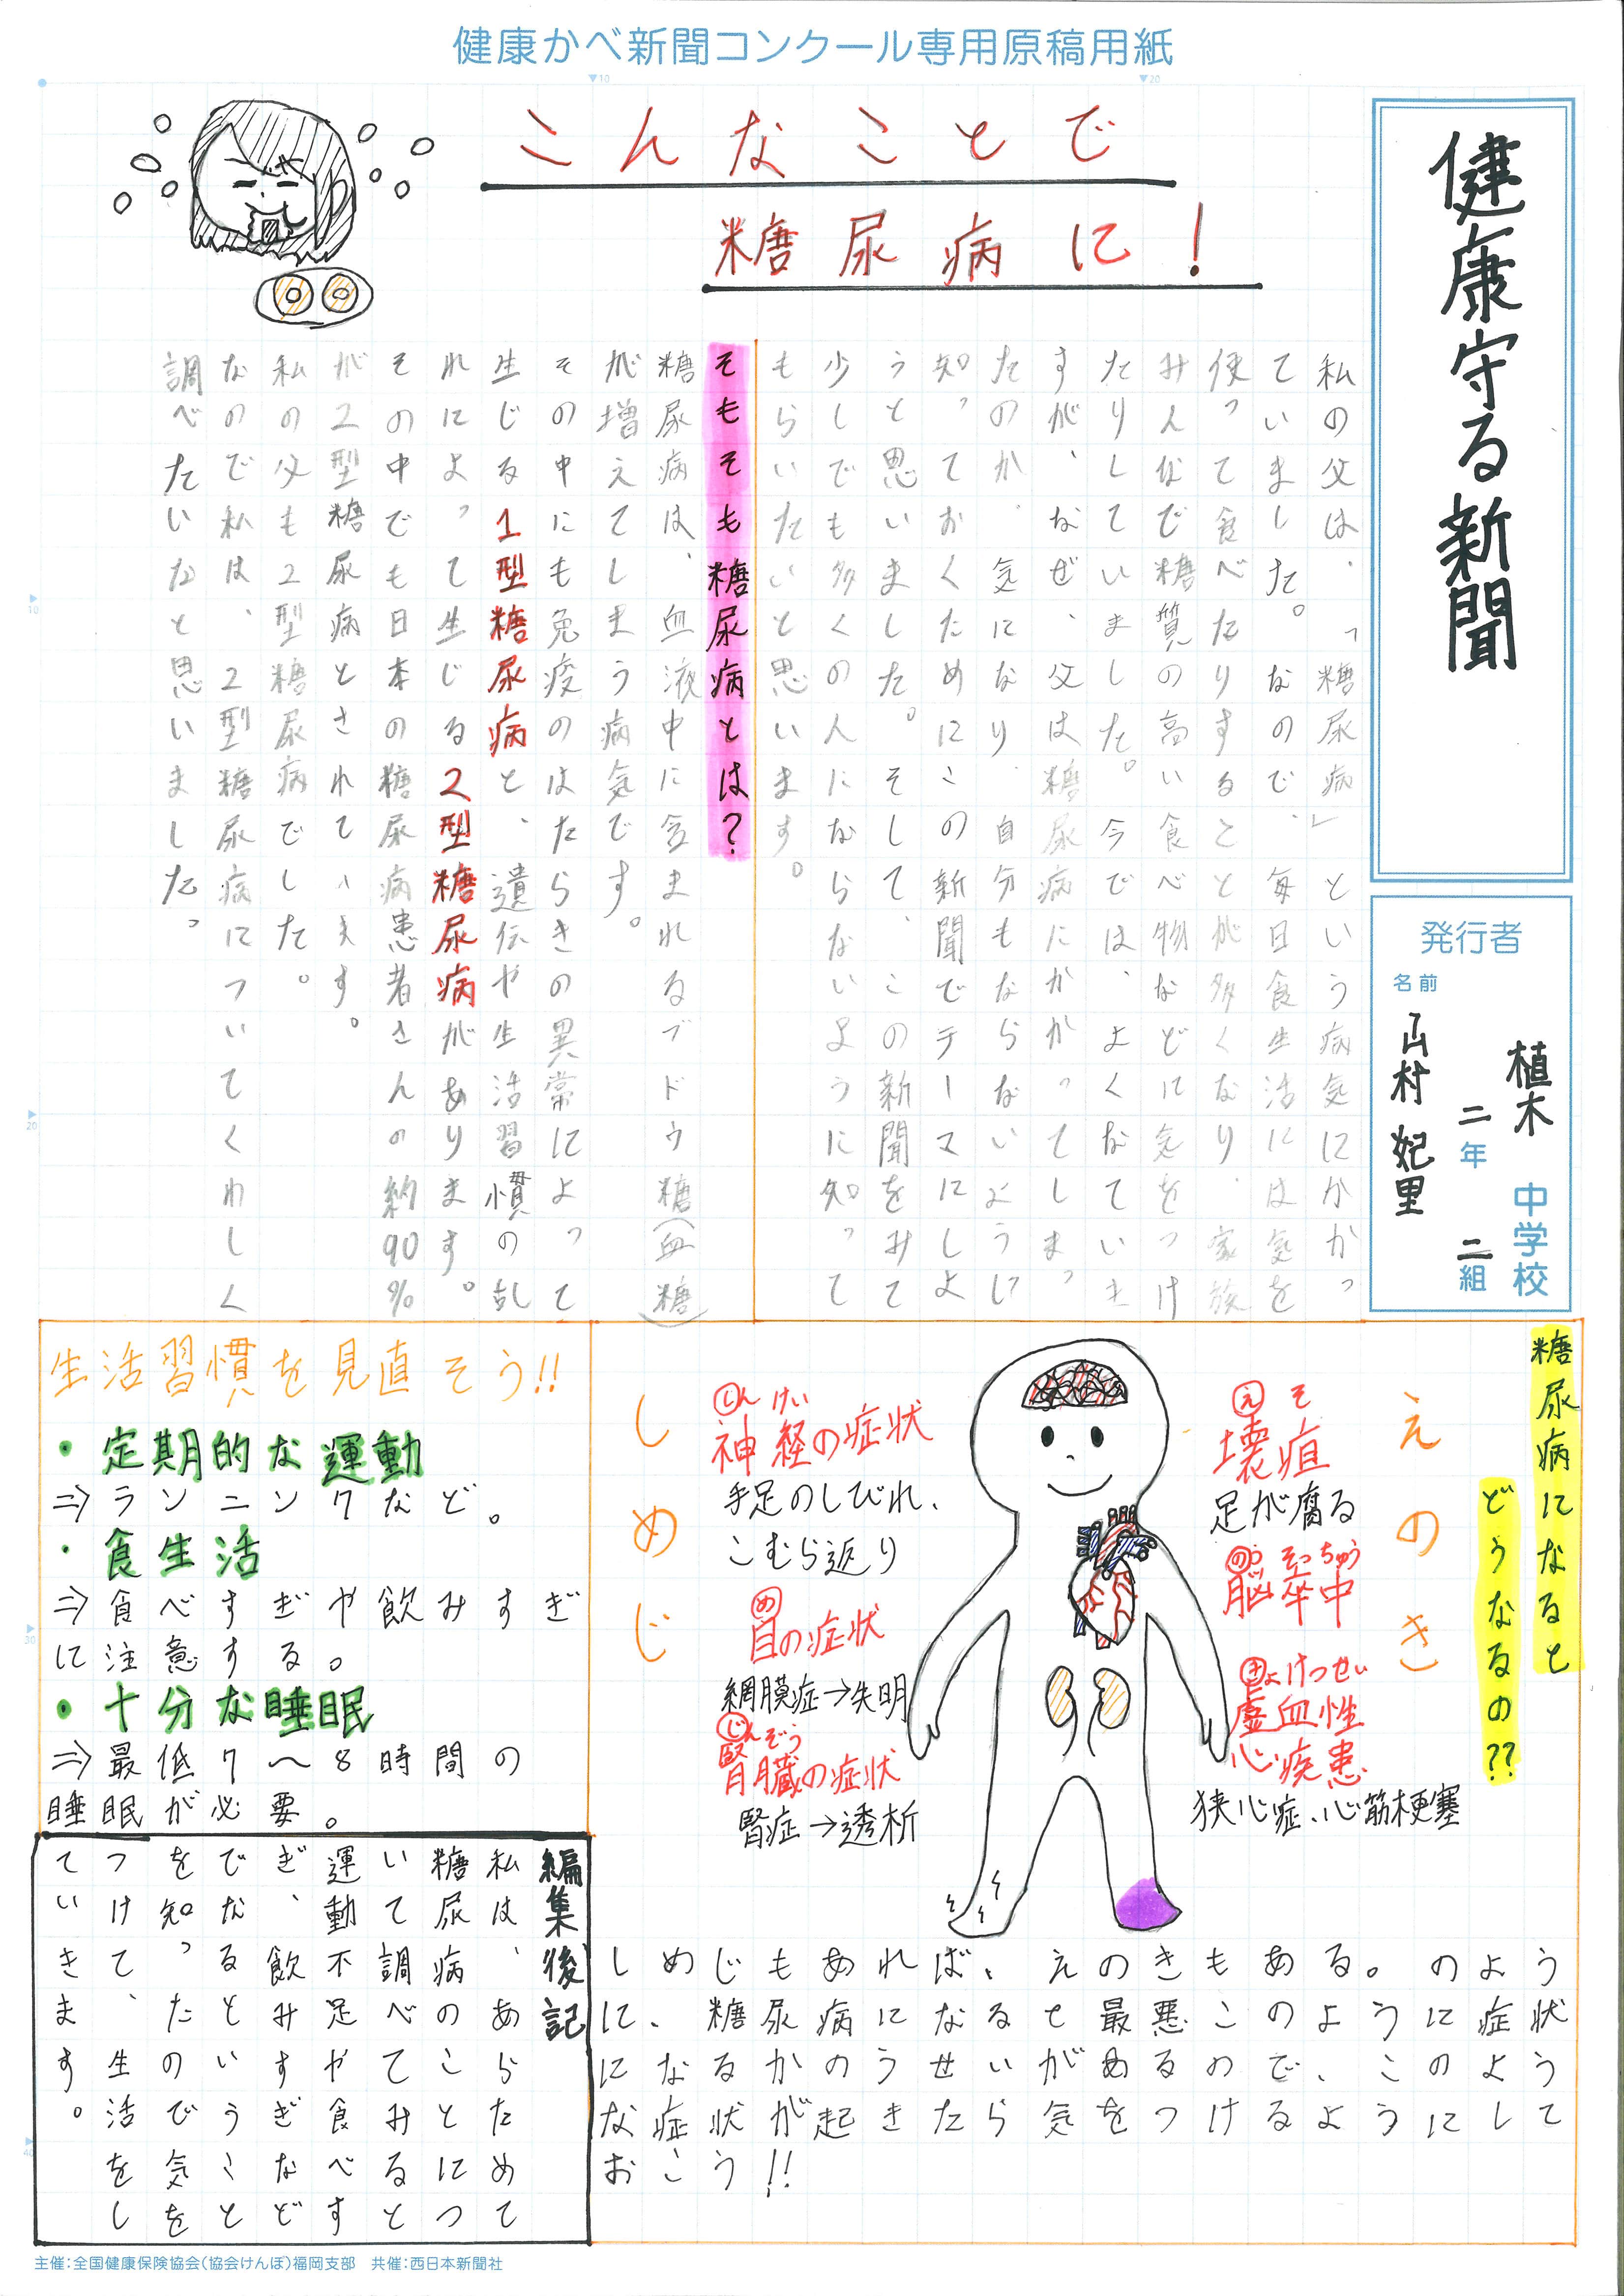 健康かべ新聞コンクール専用原稿用紙
健康守る新聞
発行者
植木 中学校
二年 二組
名前
山村 妃里
こんなことで
糖尿病に！
私の父は、「糖尿病」という病気にかかっ
ていました。なので、毎日食生活には気を
使って食べたりすることが多くなり、家族
みんなで糖質の高い食べ物などに気をつけ
たりしていました。今では、よくなていま
すが、なぜ、父は糖尿病にかかってしまっ
たのか、気になり、自分もならないように
知っておくためにこの新聞でテーマにしよ
うと思いました。そして、この新聞をみて
少しでも多くの人にならないように知って
もらいたいと思います。
そもそも糖尿病とは？
糖尿病は、血液中に含まれるブドウ糖(血糖)
が増えてしまう病気です。
その中にも免疫のはたらきの異常によって
生じる1型糖尿病と、遺伝や生活習慣の乱
れによって生じる2型糖尿病があります。
その中でも日本の糖尿病患者さんの約90%
が2型糖尿病とされています。
私の父も2型糖尿病でした。
なので私は、2型糖尿病についてくわしく
調べたいなと思いました。
糖尿病になると
どうなるの??
えのき
えそ
壊疽
足が腐る
のうそっちゅう
脳卒中
きょけつせい
虚血性
心疾患
狭心症、心筋梗塞
しめじ
しんけい
神経の症状
手足のしびれ、
こむら返り
め
目の症状
網膜症→失明
じんぞう
腎臓の症状
腎症→透析
しめじもあれば、えのきもある。のよう
に、糖尿病になると最悪このように症状
になるかのうせいがあるので、このよう
な症状が起きたら気をつけるようにして
おこう!!
生活習慣を見直そう!!
・定期的な運動
⇒ランニングなど。
・食生活
⇒食べすぎや飲みすぎ
に注意する。
・十分な睡眠
⇒最低7〜8時間の
睡眠が必要。
編集後記
私は、あらためて
糖尿病のことにつ
いて調べてみると
運動不足や食べす
ぎ、飲みすぎなど
でなるということ
を知ったので気を
つけて、生活をし
ていきます。
主催：全国健康保険協会（協会けんぽ）福岡支部　共催：西日本新聞社
▼10
▼20
▶10
▶20
▶30
▶40